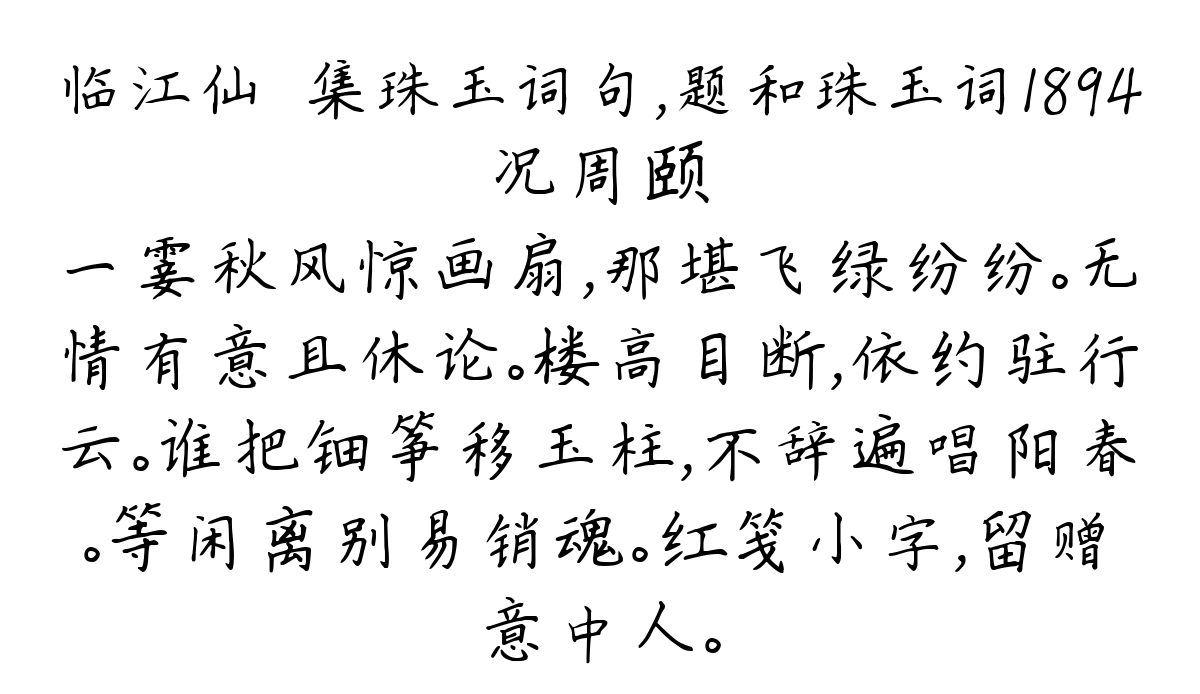 临江仙 集珠玉词句,题和珠玉词1894
况周颐
一霎秋风惊画扇,那堪飞绿纷纷。无
情有意且休论。楼高目断,依约驻行
云。谁把钿筝移玉柱,不辞遍唱阳春
。等闲离别易销魂。红笺小字,留赠
意中人。